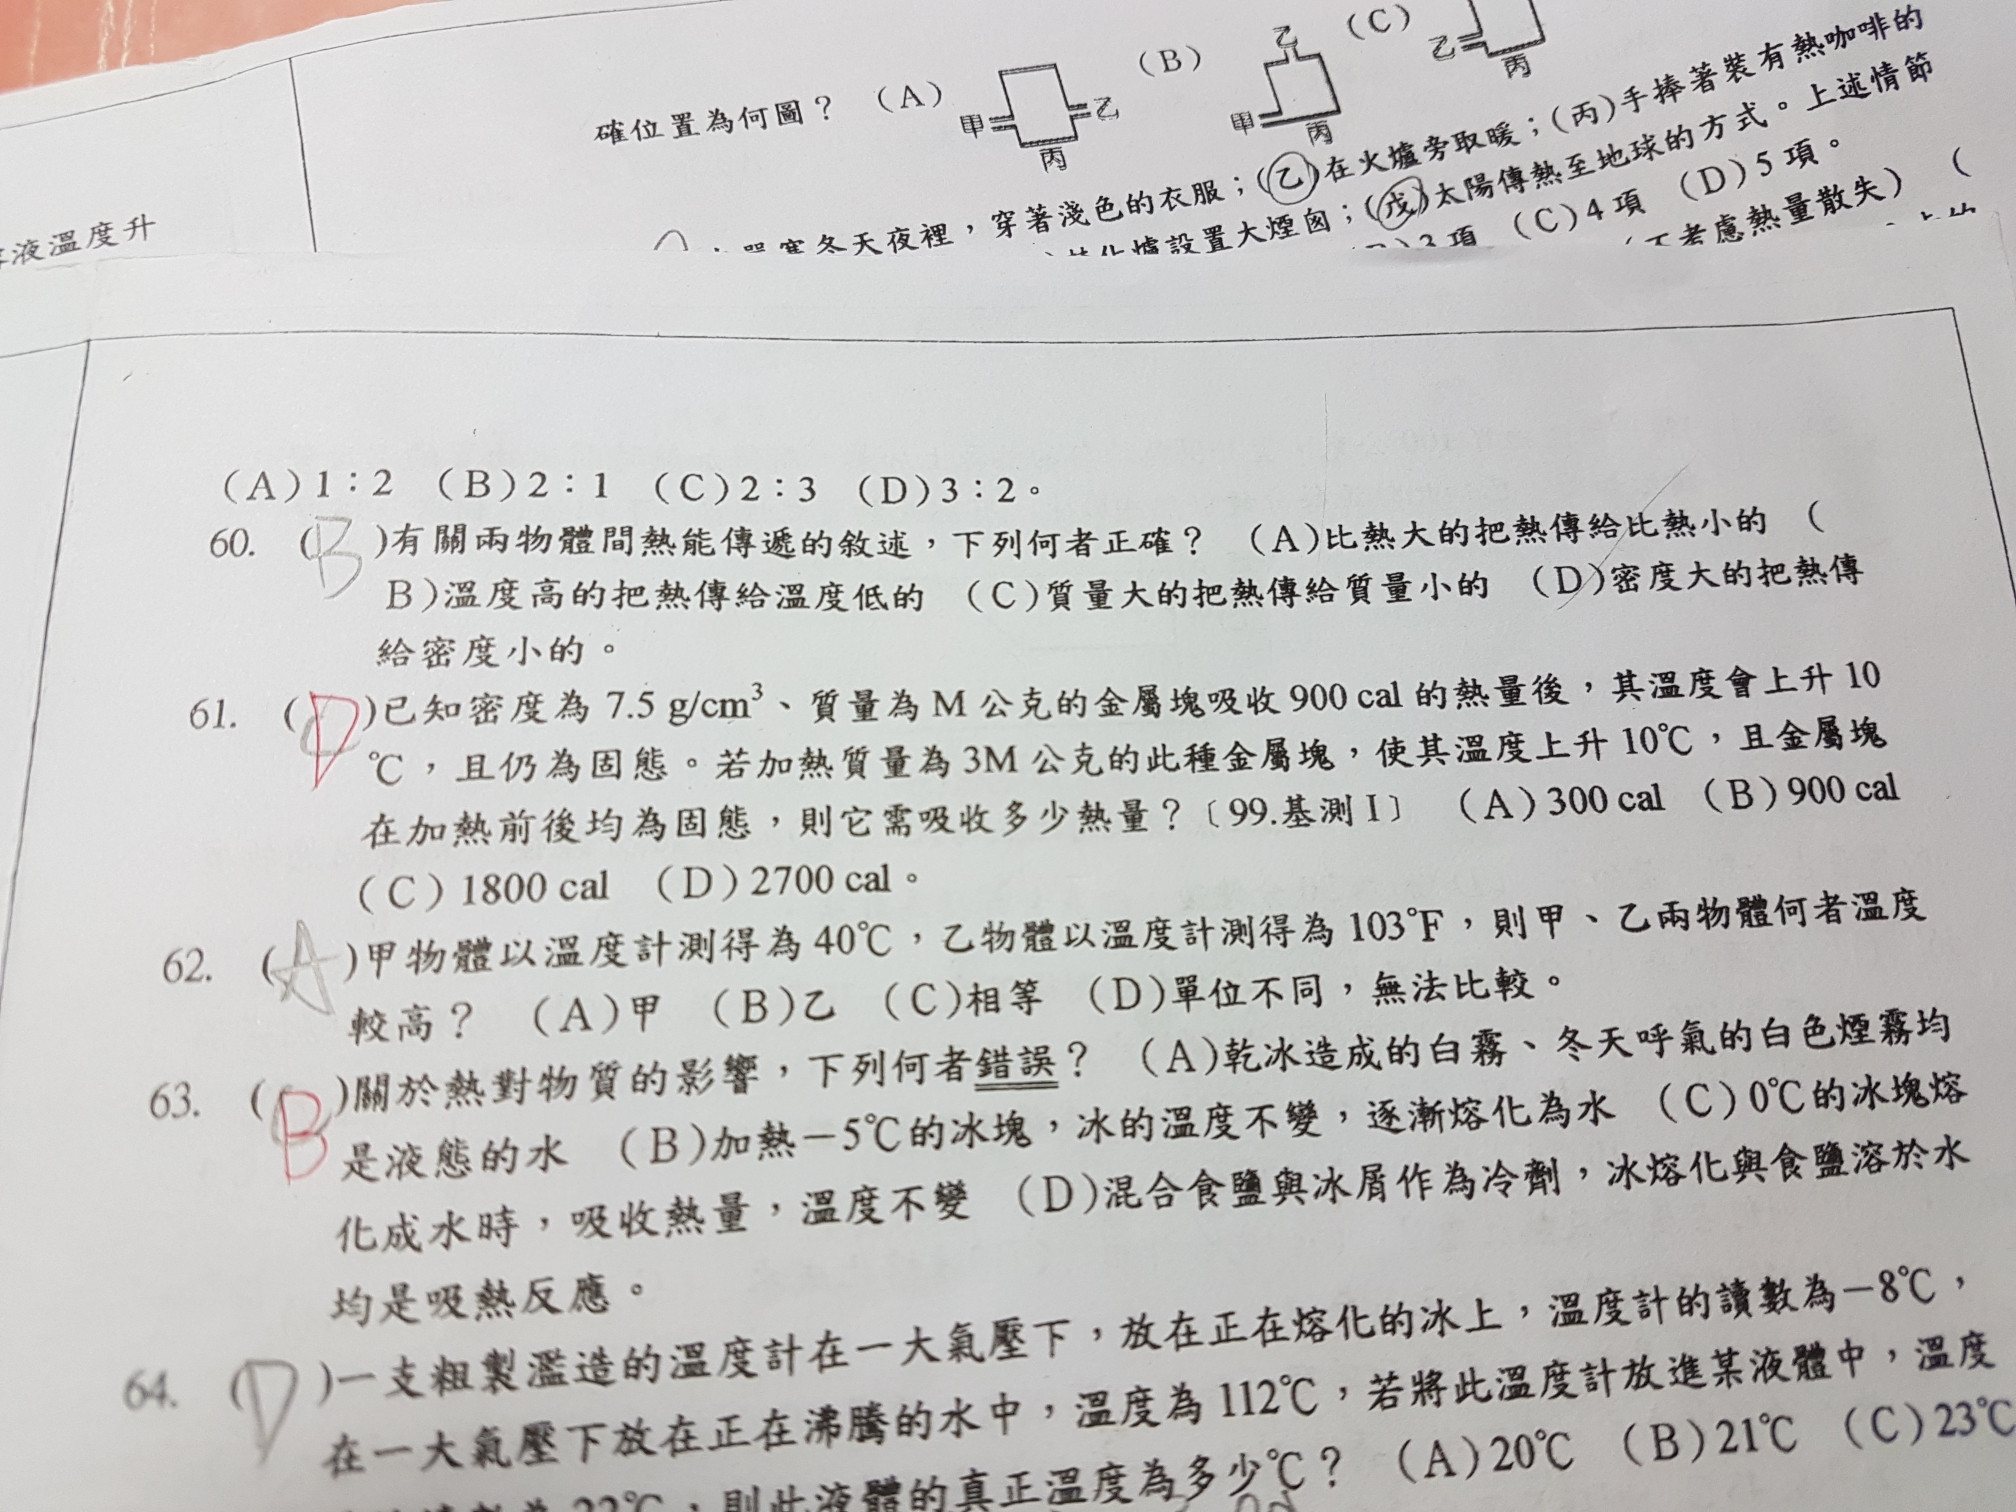 確位置為何圖？ （A） 甲 乙 丙 （B） 甲 乙 丙 （C） 乙 丙
穿著淺色的衣服；（乙）在火爐旁取暖；（丙）手捧著裝有熱咖啡的
冬天夜裡，
爐設置大煙囪；（戊）太陽傳熱至地球的方式。上述情節
3項 （C）4項 （D）5項。
不考慮熱量散失） （
液溫度升
（A）1：2 （B）2：1 （C）2：3 （D）3：2。
60. (B)有關兩物體間熱能傳遞的敘述，下列何者正確？ （A）比熱大的把熱傳給比熱小的 （
B）溫度高的把熱傳給溫度低的 （C）質量大的把熱傳給質量小的 （D）密度大的把熱傳
給密度小的。
61. (D)已知密度為 7.5 g/cm³、質量為 M 公克的金屬塊吸收 900 cal 的熱量後，其溫度會上升 10
℃，且仍為固態。若加熱質量為 3M 公克的此種金屬塊，使其溫度上升 10℃，且金屬塊
在加熱前後均為固態，則它需吸收多少熱量？〔99.基測 I〕 （A）300 cal （B）900 cal
（C）1800 cal （D）2700 cal。
62. (A)甲物體以溫度計測得為 40℃，乙物體以溫度計測得為 103℉，則甲、乙兩物體何者溫度
較高？ （A）甲 （B）乙 （C）相等 （D）單位不同，無法比較。
63. (B)關於熱對物質的影響，下列何者錯誤？ （A）乾冰造成的白霧、冬天呼氣的白色煙霧均
是液態的水 （B）加熱－5℃的冰塊，冰的溫度不變，逐漸熔化為水 （C）0℃的冰塊熔
化成水時，吸收熱量，溫度不變 （D）混合食鹽與冰屑作為冷劑，冰熔化與食鹽溶於水
均是吸熱反應。
64. (D)一支粗製濫造的溫度計在一大氣壓下，放在正在熔化的冰上，溫度計的讀數為－8℃，
在一大氣壓下放在正在沸騰的水中，溫度為 112℃，若將此溫度計放進某液體中，溫度
22℃，則此液體的真正溫度為多少℃？ （A）20℃ （B）21℃ （C）23℃